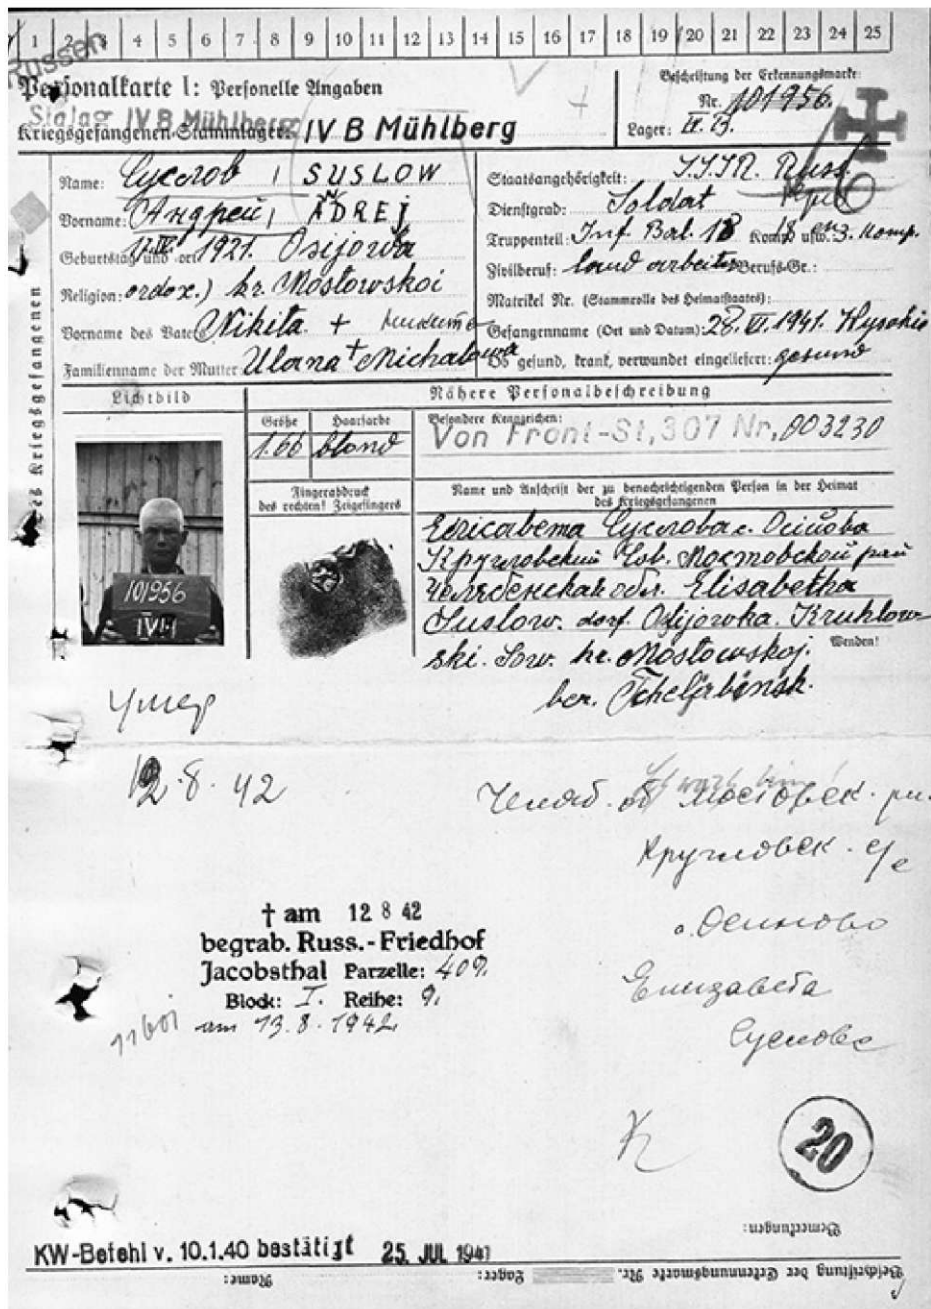 1 2 3 4 5 6 7 8 9 10 11 12 13 14 15 16 17 18 19 20 21 22 23 24 25
Russen
Personalkarte I: Personelle Angaben
Stalag IV B Mühlberg
Kriegsgefangenen-Stammlager: IV B Mühlberg
Beschriftung der Erkennungsmarke:
Nr. 101956.
Lager: IV. B.
Name: Суслов | SUSLOW
Vorname: Андрей, ADREJ
Geburtstag und -ort 12.IV. 1921. Osijowka
Religion: ordox.) kr. Mostowskoi
Vorname des Vaters Nikita +
Familienname der Mutter Ulana + Michalowa
Staatsangehörigkeit: Russ.
Dienstgrad: Soldat
Truppenteil: Inf Bat. 18 Komp. usw. 3. Komp.
Zivilberuf: land arbeiter Berufs-Gr.:
Matrikel Nr. (Stammrolle des Heimatstaates):
Gefangenname (Ort und Datum): 28. VI. 1941. Wysokie
Ob gesund, krank, verwundet eingeliefert: gesund
des Kriegsgefangenen
Lichtbild
Nähere Personalbeschreibung
Größe Haarfarbe
1.66 blond
Besondere Kennzeichen:
Von Front-St, 307 Nr, 003230
Fingerabdruck
des rechten! Zeigefingers
Name und Anschrift der zu benachrichtigenden Person in der Heimat
des Kriegsgefangenen
101956
IV B
Елисавета Суслова с. Осиова
Кругловский Сов. Мостовской рай
Челябенская обл. Elisabetha
Suslow. dorf. Osijowka. Kruhlow-
ski. Sow. kr. Mostowskoj.
Wenden!
ber. Tscheljabinsk.
Умер
12.8.42
Челяб. об Мостовск. рн.
Кругловск. с/с
д. Осиново
Елизавета
Суслова
† am 12 8 42
begrab. Russ.-Friedhof
Jacobsthal Parzelle: 409.
Block: I. Reihe: 9.
am 13.8.1942
20
Bemerkungen:
KW-Befehl v. 10.1.40 bestätigt 25. JUL 1941
Beschriftung der Erkennungsmarke Nr. Lager: Name: